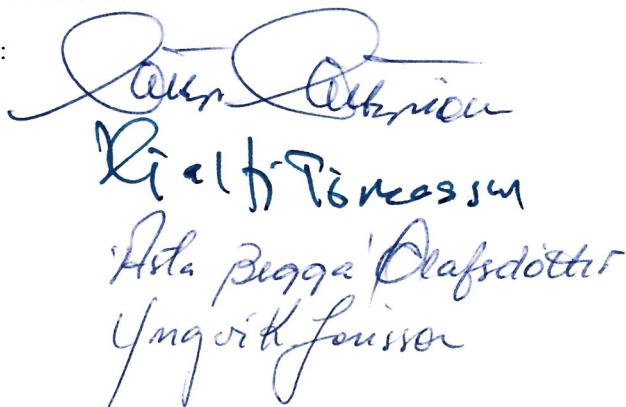 :
Hjalti Tómasson
Ásta Begga Ólafsdóttir
Yngvi K Jónsson